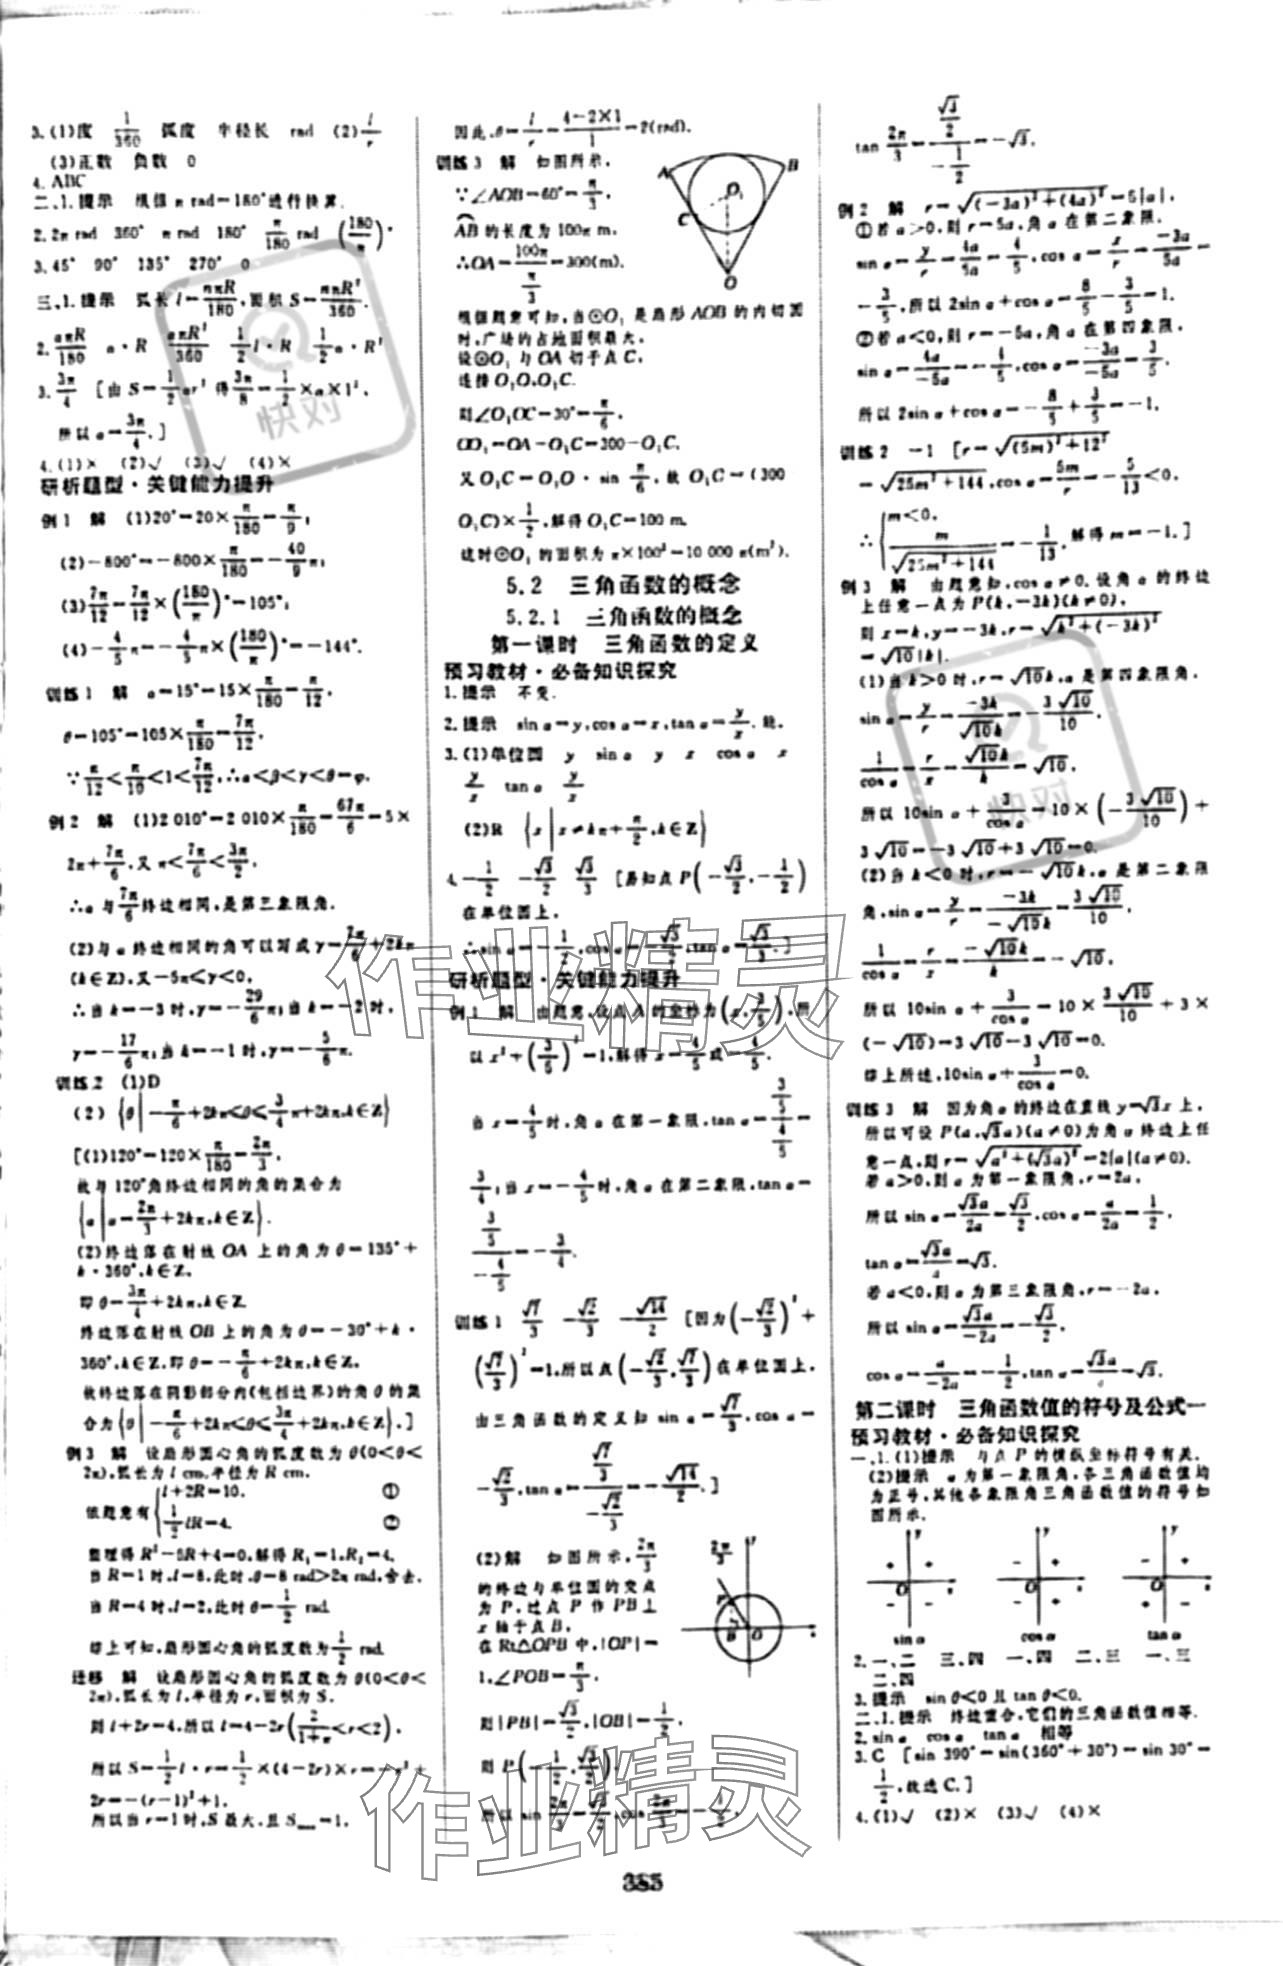 3.(1)度 1/360 弧度 半径长 rad (2)l/r
(3)正数 负数 0
4.ABC
二、1.提示 根据π rad=180°进行换算.
2.2π rad 360° π rad 180° π/180 rad (180/π)°
3.45° 90° 135° 270° 0
三、1.提示 弧长l=nπR/180,面积S=nπR²/360.
2.απR/180 α·R απR²/360 1/2 l·R 1/2 α·R²
3.3π/4 [由S=1/2 αr²得3π/8=1/2×α×1²,
所以α=3π/4.]
4.(1)× (2)√ (3)√ (4)×
研析题型·关键能力提升
例1 解 (1)20°=20×π/180=π/9;
(2)-800°=-800×π/180=-40/9 π;
(3)7π/12=7π/12×(180/π)°=105°;
(4)-4/5 π=-4/5 π×(180/π)°=-144°.
训练1 解 α=15°=15×π/180=π/12,
θ=105°=105×π/180=7π/12,
∵π/12<π/10<1<7π/12,∴α<β<γ<θ=φ.
例2 解 (1)2 010°=2 010×π/180=67π/6=5×
2π+7π/6,又π<7π/6<3π/2,
∴α与7π/6终边相同,是第三象限角.
(2)与α终边相同的角可以写成γ=7π/6+2kπ
(k∈Z),又-5π≤γ<0,
∴当k=-3时,γ=-29/6 π;当k=-2时,
γ=-17/6 π;当k=-1时,γ=-5/6 π.
训练2 (1)D
(2){θ|-π/6+2kπ≤θ≤3/4 π+2kπ,k∈Z}
[(1)120°=120×π/180=2π/3,
故与120°角终边相同的角的集合为
{α|α=2π/3+2kπ,k∈Z}.
(2)终边落在射线OA上的角为θ=135°+
k·360°,k∈Z,
即θ=3π/4+2kπ,k∈Z.
终边落在射线OB上的角为θ=-30°+k·
360°,k∈Z,即θ=-π/6+2kπ,k∈Z,
故终边落在阴影部分内(包括边界)的角θ的集
合为{θ|-π/6+2kπ≤θ≤3π/4+2kπ,k∈Z}.]
例3 解 设扇形圆心角的弧度数为θ(0<θ<
2π),弧长为l cm,半径为R cm,
依题意有{l+2R=10, ①
1/2 lR=4. ②
整理得R²-5R+4=0,解得R₁=1,R₂=4,
当R=1时,l=8,此时,θ=8 rad>2π rad,舍去.
当R=4时,l=2,此时θ=1/2 rad.
综上可知,扇形圆心角的弧度数为1/2 rad.
迁移 解 设扇形圆心角的弧度数为θ(0<θ<
2π),弧长为l,半径为r,面积为S,
则l+2r=4,所以l=4-2r(2/(1+π)<r<2),
所以S=1/2 l·r=1/2×(4-2r)×r=-r²+
2r=-(r-1)²+1,
所以当r=1时,S最大,且Smax=1,
因此,θ=l/r=(4-2×1)/1=2(rad).
训练3 解 如图所示,
∵∠AOB=60°=π/3,
AB的长度为100π m,
∴OA=100π/(π/3)=300(m).
根据题意可知,当⊙O₁是扇形AOB的内切圆
时,广场的占地面积最大,
设⊙O₁与OA切于点C,
连接O₁O,O₁C.
则∠O₁OC=30°=π/6,
OO₁=OA-O₁C=300-O₁C,
又O₁C=O₁O·sin π/6,故O₁C=(300-
O₁C)×1/2,解得O₁C=100 m.
这时⊙O₁的面积为π×100²=10 000 π(m²).
A B O₁ C O
5.2 三角函数的概念
5.2.1 三角函数的概念
第一课时 三角函数的定义
预习教材·必备知识探究
1.提示 不变.
2.提示 sin α=y,cos α=x,tan α=y/x.能.
3.(1)单位圆 y sin α y x cos α x
y/x tan α y/x
(2)R {x|x≠kπ+π/2,k∈Z}
4.-1/2 -√3/2 √3/3 [易知点P(-√3/2,-1/2)
在单位圆上,
∴sin α=-1/2,cos α=-√3/2,tan α=√3/3.]
研析题型·关键能力提升
例1 解 由题意,设点A的坐标为(x,3/5),所
以x²+(3/5)²=1,解得x=4/5或-4/5.
当x=4/5时,角α在第一象限,tan α=(3/5)/(4/5)=
3/4;当x=-4/5时,角α在第二象限,tan α=
(3/5)/(-4/5)=-3/4.
训练1 √7/3 -√2/3 -√14/2 [因为(-√2/3)²+
(√7/3)²=1,所以点(-√2/3,√7/3)在单位圆上,
由三角函数的定义知sin α=√7/3,cos α=
-√2/3,tan α=(√7/3)/(-√2/3)=-√14/2.]
(2)解 如图所示,2π/3
的终边与单位圆的交点
为P,过点P作PB⊥
x轴于点B,
在Rt△OPB中,|OP|=
1,∠POB=π/3,
则|PB|=√3/2,|OB|=1/2,
则P(-1/2,√3/2),
所以sin 2π/3=√3/2,cos 2π/3=-1/2,
2π/3 y P B O x
tan 2π/3=(√3/2)/(-1/2)=-√3.
例2 解 r=√((-3a)²+(4a)²)=5|a|,
①若a>0,则r=5a,角α在第二象限,
sin α=y/r=4a/5a=4/5,cos α=x/r=-3a/5a=
-3/5,所以2sin α+cos α=8/5-3/5=1.
②若a<0,则r=-5a,角α在第四象限,
sin α=4a/-5a=-4/5,cos α=-3a/-5a=3/5,
所以2sin α+cos α=-8/5+3/5=-1.
训练2 -1 [r=√((5m)²+12²)
=√(25m²+144),cos α=5m/r=-5/13<0,
∴{m<0,
m/√(25m²+144)=-1/13,解得m=-1.]
例3 解 由题意知,cos α≠0.设角α的终边
上任意一点为P(k,-3k)(k≠0),
则x=k,y=-3k,r=√(k²+(-3k)²)
=√10|k|.
(1)当k>0时,r=√10k,α是第四象限角,
sin α=y/r=-3k/√10k=-3√10/10,
1/cos α=r/x=√10k/k=√10,
所以10sin α+3/cos α=10×(-3√10/10)+
3√10=-3√10+3√10=0.
(2)当k<0时,r=-√10k,α是第二象限
角,sin α=y/r=-3k/-√10k=3√10/10,
1/cos α=r/x=-√10k/k=-√10,
所以10sin α+3/cos α=10×3√10/10+3×
(-√10)=3√10-3√10=0.
综上所述,10sin α+3/cos α=0.
训练3 解 因为角α的终边在直线y=√3x上,
所以可设P(a,√3a)(a≠0)为角α终边上任
意一点,则r=√(a²+(√3a)²)=2|a|(a≠0).
若a>0,则α为第一象限角,r=2a,
所以sin α=√3a/2a=√3/2,cos α=a/2a=1/2,
tan α=√3a/a=√3.
若a<0,则α为第三象限角,r=-2a,
所以sin α=√3a/-2a=-√3/2,
cos α=a/-2a=-1/2,tan α=√3a/a=√3.
第二课时 三角函数值的符号及公式一
预习教材·必备知识探究
一、1.(1)提示 与点P的横纵坐标符号有关.
(2)提示 α为第一象限角,各三角函数值均
为正号,其他各象限角三角函数值的符号如
图所示.
y + + O x - - sin α
y - + O x - + cos α
y - + O x + - tan α
2.一、二 三、四 一、四 二、三 一、三
二、四
3.提示 sin θ<0且tan θ<0.
二、1.提示 终边重合,它们的三角函数值相等.
2.sin α cos α tan α 相等
3.C [sin 390°=sin(360°+30°)=sin 30°=
1/2,故选C.]
4.(1)√ (2)× (3)√ (4)×
385
快对
快对
作业精灵
作业精灵